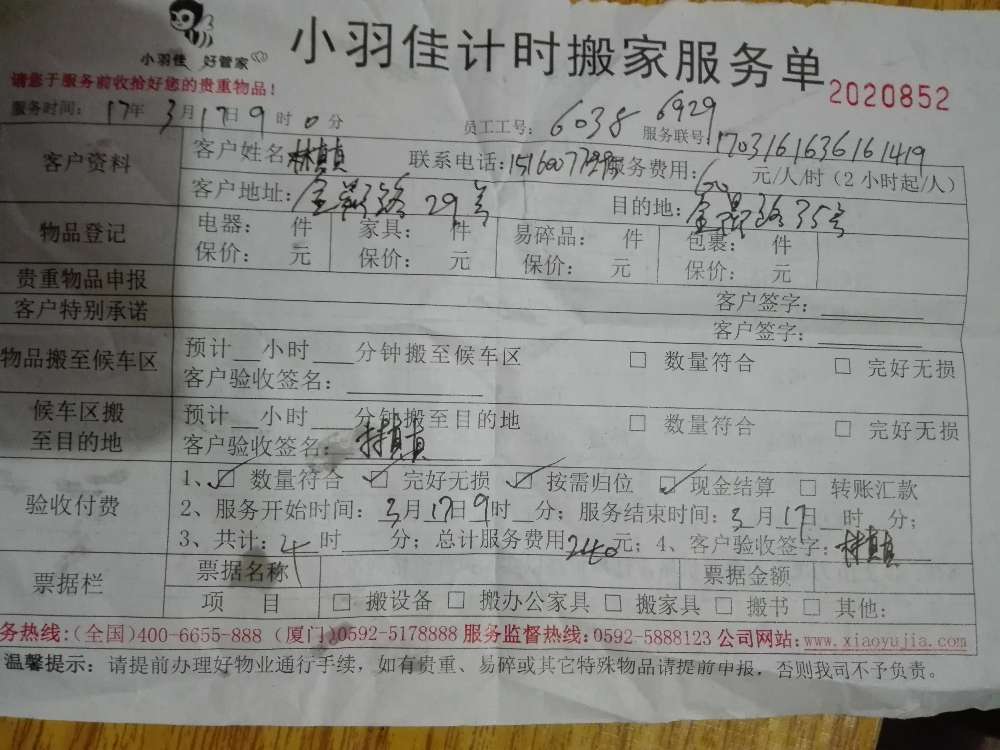 小羽佳 好管家
小羽佳计时搬家服务单
2020852
请您于服务前收拾好您的贵重物品！
服务时间：17年3月17日9时0分 员工工号：6038 6929 服务联号：1703161636161419
客户资料
客户姓名：林真真 联系电话： 服务费用：60元/人/时（2小时起/人）
客户地址： 路29号 目的地： 路35号
物品登记
电器： 件 家具： 件 易碎品： 件 包裹： 件
保价： 元 保价： 元 保价： 元 保价： 元
贵重物品申报 客户签字：
客户特别承诺 客户签字：
物品搬至候车区
预计 小时 分钟搬至候车区 □ 数量符合 □ 完好无损
客户验收签名：
候车区搬
至目的地
预计 小时 分钟搬至目的地 □ 数量符合 □ 完好无损
客户验收签名：林真真
验收付费
1、☑ 数量符合 ☑ 完好无损 ☑ 按需归位 ☑ 现金结算 □ 转账汇款
2、服务开始时间：3月17日9时 分；服务结束时间：3月17日 时 分；
3、共计：4时 分；总计服务费用240元；4、客户验收签字：林真真
票据栏
票据名称 票据金额
项 目 □ 搬设备 □ 搬办公家具 □ 搬家具 □ 搬书 □ 其他：
务热线：(全国)400-6655-888（厦门)0592-5178888 服务监督热线：0592-5888123 公司网站：www.xiaoyujia.com
温馨提示：请提前办理好物业通行手续，如有贵重、易碎或其它特殊物品请提前申报，否则我司不予负责。